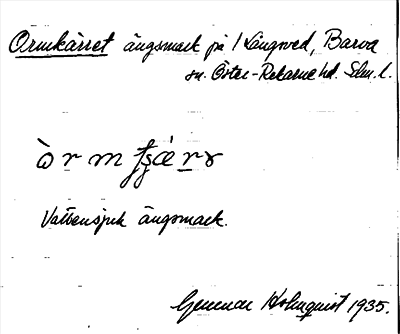 Ormkärret ängsmark på 1 Långved, Barva
sn. Öster-Rekarne hd. Sdm. l.
Vattensjuk ängsmark.
Gunnar Holmquist 1935.